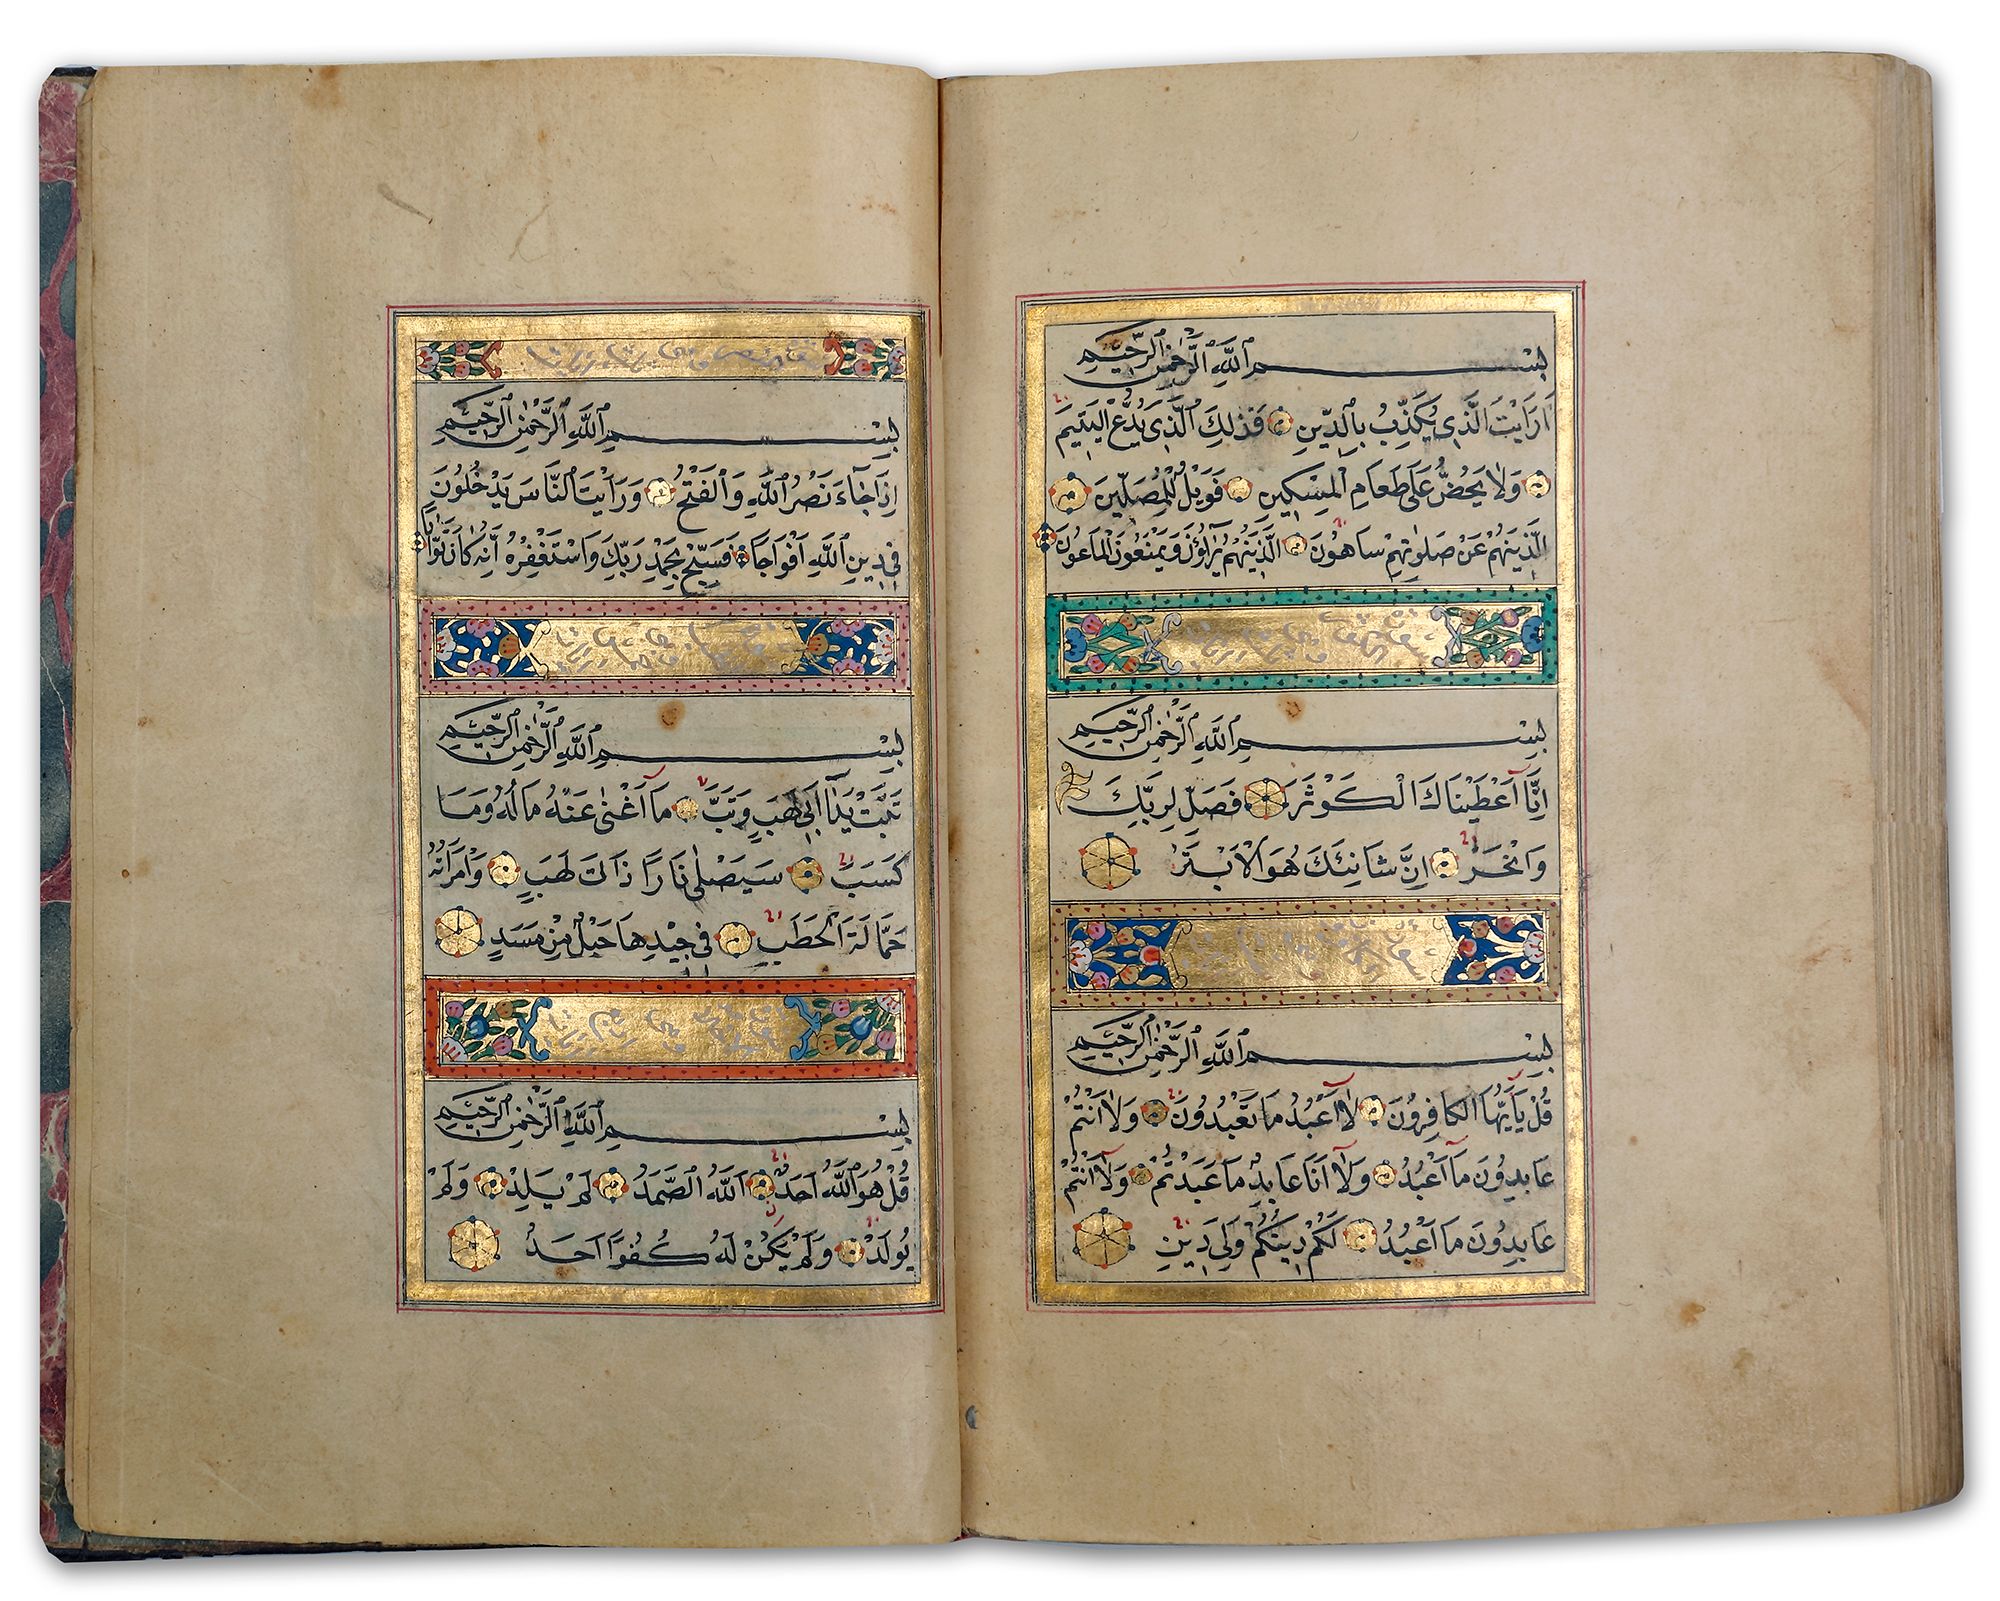 بِسْمِ اللَّهِ الرَّحْمَٰنِ الرَّحِيمِ
اَرَاَيْتَ الَّذِى يُكَذِّبُ بِالدِّينِ فَذٰلِكَ الَّذِى يَدُعُّ الْيَتِيمَ
وَلَا يَحُضُّ عَلَى طَعَامِ الْمِسْكِينِ فَوَيْلٌ لِلْمُصَلِّينَ
الَّذِينَ هُمْ عَنْ صَلَوٰتِهِمْ سَاهُونَ الَّذِينَ هُمْ يُرَاؤُنَ وَيَمْنَعُونَ الْمَاعُونَ
سورة الكوثر
بِسْمِ اللَّهِ الرَّحْمَٰنِ الرَّحِيمِ
اِنَّا اَعْطَيْنَاكَ الْكَوْثَرَ فَصَلِّ لِرَبِّكَ
وَانْحَرْ اِنَّ شَانِئَكَ هُوَ الْاَبْتَرُ
سورة
بِسْمِ اللَّهِ الرَّحْمَٰنِ الرَّحِيمِ
قُلْ يَا اَيُّهَا الْكَافِرُونَ لَا اَعْبُدُ مَا تَعْبُدُونَ وَلَا اَنْتُمْ
عَابِدُونَ مَا اَعْبُدُ وَلَا اَنَا عَابِدٌ مَا عَبَدْتُمْ وَلَا اَنْتُمْ
عَابِدُونَ مَا اَعْبُدُ لَكُمْ دِينُكُمْ وَلِىَ دِينِ
بِسْمِ اللَّهِ الرَّحْمَٰنِ الرَّحِيمِ
اِذَا جَاءَ نَصْرُ اللَّهِ وَالْفَتْحُ وَرَاَيْتَ النَّاسَ يَدْخُلُونَ
فِى دِينِ اللَّهِ اَفْوَاجًا فَسَبِّحْ بِحَمْدِ رَبِّكَ وَاسْتَغْفِرْهُ اِنَّهُ كَانَ تَوَّابًا
بِسْمِ اللَّهِ الرَّحْمَٰنِ الرَّحِيمِ
تَبَّتْ يَدَا اَبِى لَهَبٍ وَتَبَّ مَا اَغْنٰى عَنْهُ مَالُهُ وَمَا
كَسَبَ سَيَصْلٰى نَارًا ذَاتَ لَهَبٍ وَامْرَاَتُهُ
حَمَّالَةَ الْحَطَبِ فِى جِيدِهَا حَبْلٌ مِنْ مَسَدٍ
بِسْمِ اللَّهِ الرَّحْمَٰنِ الرَّحِيمِ
قُلْ هُوَ اللَّهُ اَحَدٌ اَللَّهُ الصَّمَدُ لَمْ يَلِدْ وَلَمْ
يُولَدْ وَلَمْ يَكُنْ لَهُ كُفُوًا اَحَدٌ